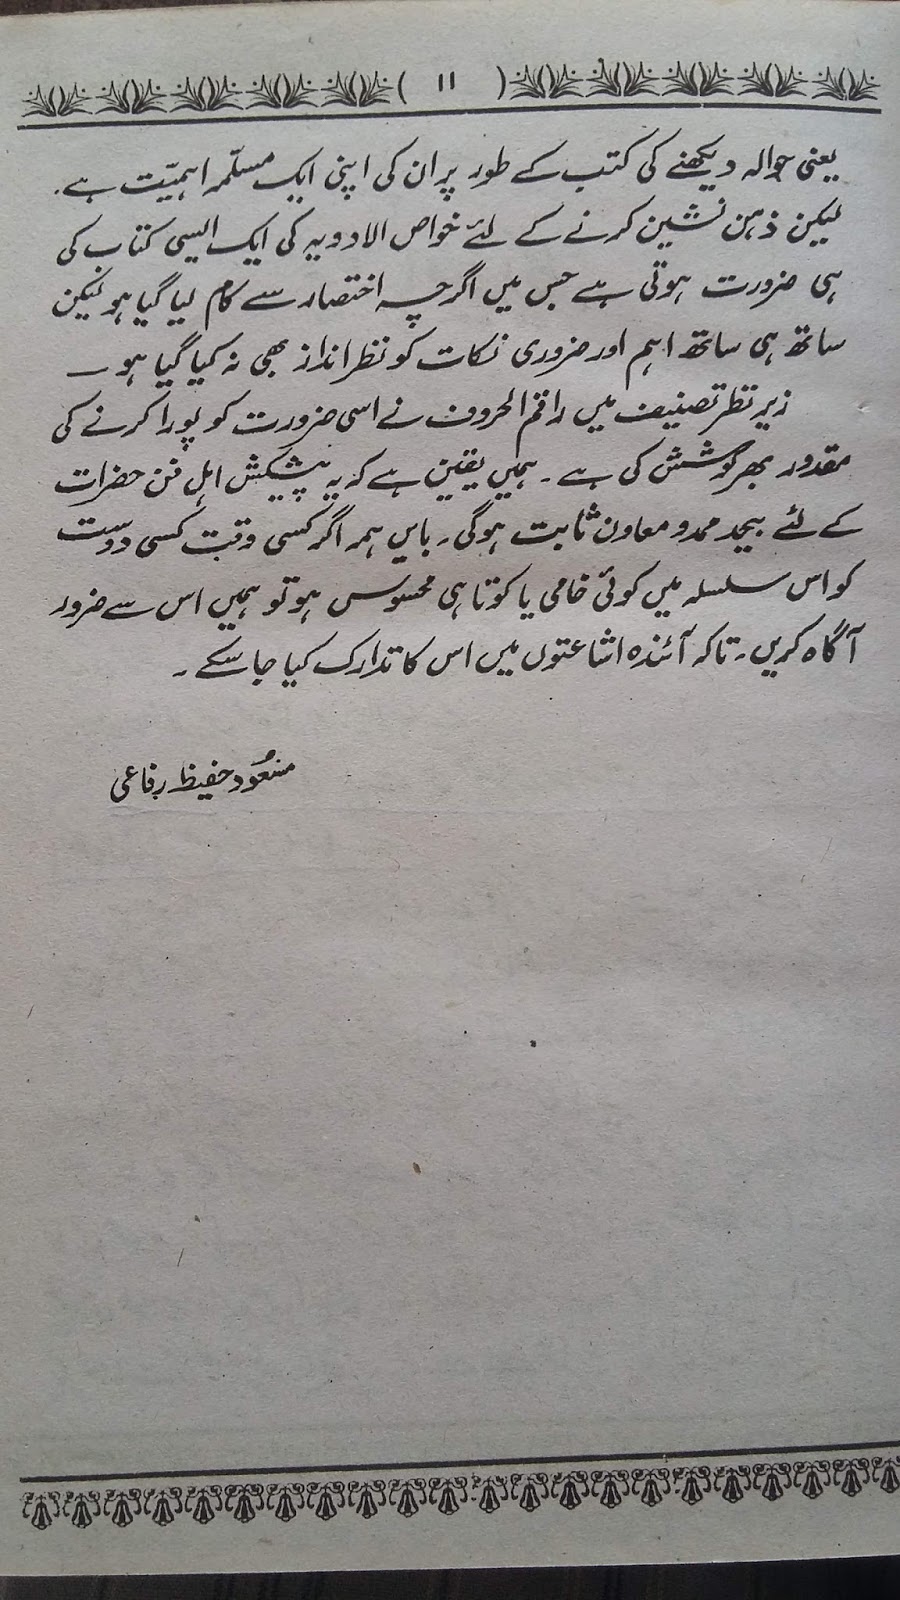 ( ۱۱ )
یعنی حوالہ دیکھنے کی کتب کے طور پر ان کی اپنی ایک مسلّمہ اہمیّت ہے۔
لیکن ذہن نشین کرنے کے لئے خواص الادویہ کی ایک ایسی کتاب کی
ہی ضرورت ہوتی ہے جس میں اگرچہ اختصار سے کام لیا گیا ہو لیکن
ساتھ ہی ساتھ اہم اور ضروری نکات کو نظر انداز بھی نہ کیا گیا ہو۔
زیر نظر تصنیف میں راقم الحروف نے اسی ضرورت کو پورا کرنے کی
مقدور بھر کوشش کی ہے۔ ہمیں یقین ہے کہ یہ پیشکش اہل فن حضرات
کے لئے بیحد ممد و معاون ثابت ہوگی۔ بایں ہمہ اگر کسی وقت کسی دوست
کو اس سلسلہ میں کوئی خامی یا کوتاہی محسوس ہو تو ہمیں اس سے ضرور
آگاہ کریں۔ تاکہ آئندہ اشاعتوں میں اس کا تدارک کیا جا سکے۔
مسعُود حفیظ رفاعی